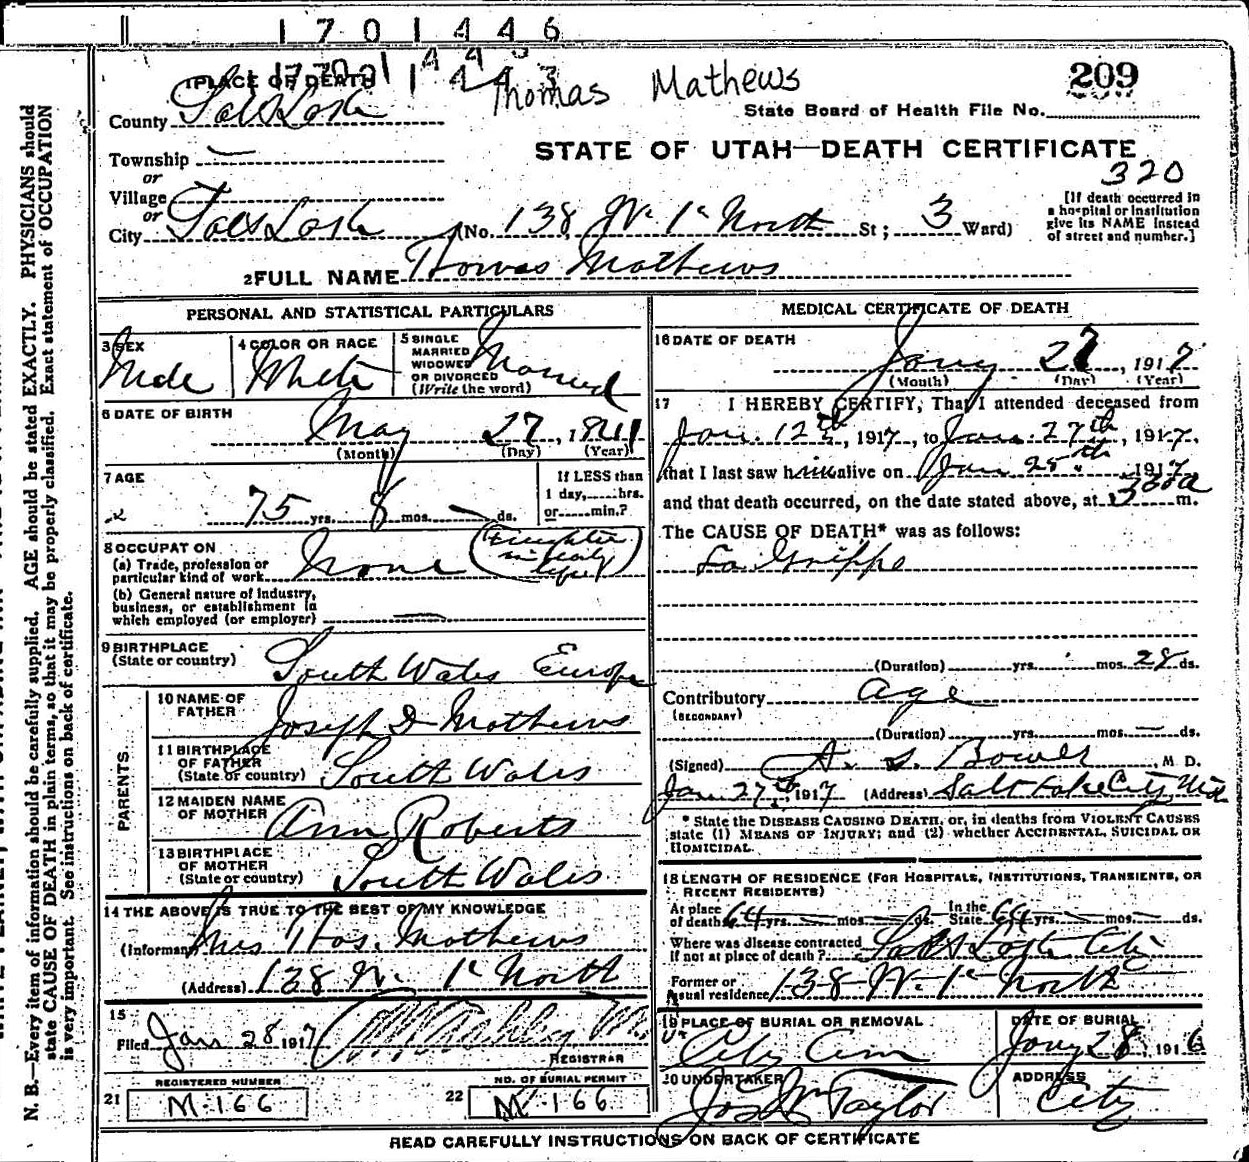 1701446
1 PLACE OF DEATH
Thomas Mathews
209
County Salt Lake
State Board of Health File No.
Township —
STATE OF UTAH—DEATH CERTIFICATE
or
320
Village
or
City Salt Lake (No. 138 W. 1st North St; 3 Ward)
[If death occurred in
a hospital or institution
give its NAME instead
of street and number.]
2 FULL NAME Thomas Mathews
PERSONAL AND STATISTICAL PARTICULARS
3 SEX
Male
4 COLOR OR RACE
White
5 SINGLE
MARRIED
WIDOWED
OR DIVORCED
(Write the word)
Married
6 DATE OF BIRTH
May 27, 1841
(Month) (Day) (Year)
7 AGE
75 yrs. 8 mos. — ds.
If LESS than
1 day, hrs.
or min.?
8 OCCUPATION
(a) Trade, profession or
particular kind of work None
(b) General nature of industry,
business, or establishment in
which employed (or employer) —
9 BIRTHPLACE
(State or country) South Wales Europe
PARENTS
10 NAME OF
FATHER Joseph D Mathews
11 BIRTHPLACE
OF FATHER
(State or country) South Wales
12 MAIDEN NAME
OF MOTHER Ann Roberts
13 BIRTHPLACE
OF MOTHER
(State or country) South Wales
14 THE ABOVE IS TRUE TO THE BEST OF MY KNOWLEDGE
(Informant) Mrs Thos. Mathews
(Address) 138 W. 1st North
15
Filed Jan 28 1917
REGISTRAR
REGISTERED NUMBER
21 M-166
NO. OF BURIAL PERMIT
22 M-166
MEDICAL CERTIFICATE OF DEATH
16 DATE OF DEATH
Jany. 27, 1917
(Month) (Day) (Year)
17 I HEREBY CERTIFY, That I attended deceased from
Jan. 12th, 1917, to Jan. 27th, 1917,
that I last saw him alive on Jan 25th 1917
and that death occurred, on the date stated above, at 330a m.
The CAUSE OF DEATH* was as follows:
La Grippe
(Duration) yrs. mos. 28 ds.
Contributory age
(SECONDARY)
(Duration) yrs. mos. — ds.
(Signed) A. S. Bower, M. D.
Jan 27th, 1917 (Address) Salt Lake City Utah
* State the DISEASE CAUSING DEATH, or, in deaths from VIOLENT CAUSES
state (1) MEANS OF INJURY; and (2) whether ACCIDENTAL, SUICIDAL OR
HOMICIDAL.
18 LENGTH OF RESIDENCE (FOR HOSPITALS, INSTITUTIONS, TRANSIENTS, OR
RECENT RESIDENTS)
At place
of death 64 yrs. — mos. ds. In the
State 64 yrs. — mos. — ds.
Where was disease contracted
if not at place of death? Salt Lake City
Former or
usual residence 138 W. 1st North
19 PLACE OF BURIAL OR REMOVAL
City Cem
DATE OF BURIAL
Jany 28, 1916
20 UNDERTAKER
Jos Wm Taylor
ADDRESS
City
READ CAREFULLY INSTRUCTIONS ON BACK OF CERTIFICATE
N. B.—Every item of information should be carefully supplied. AGE should be stated EXACTLY. PHYSICIANS should
state CAUSE OF DEATH in plain terms, so that it may be properly classified. Exact statement of OCCUPATION
is very important. See instructions on back of certificate.